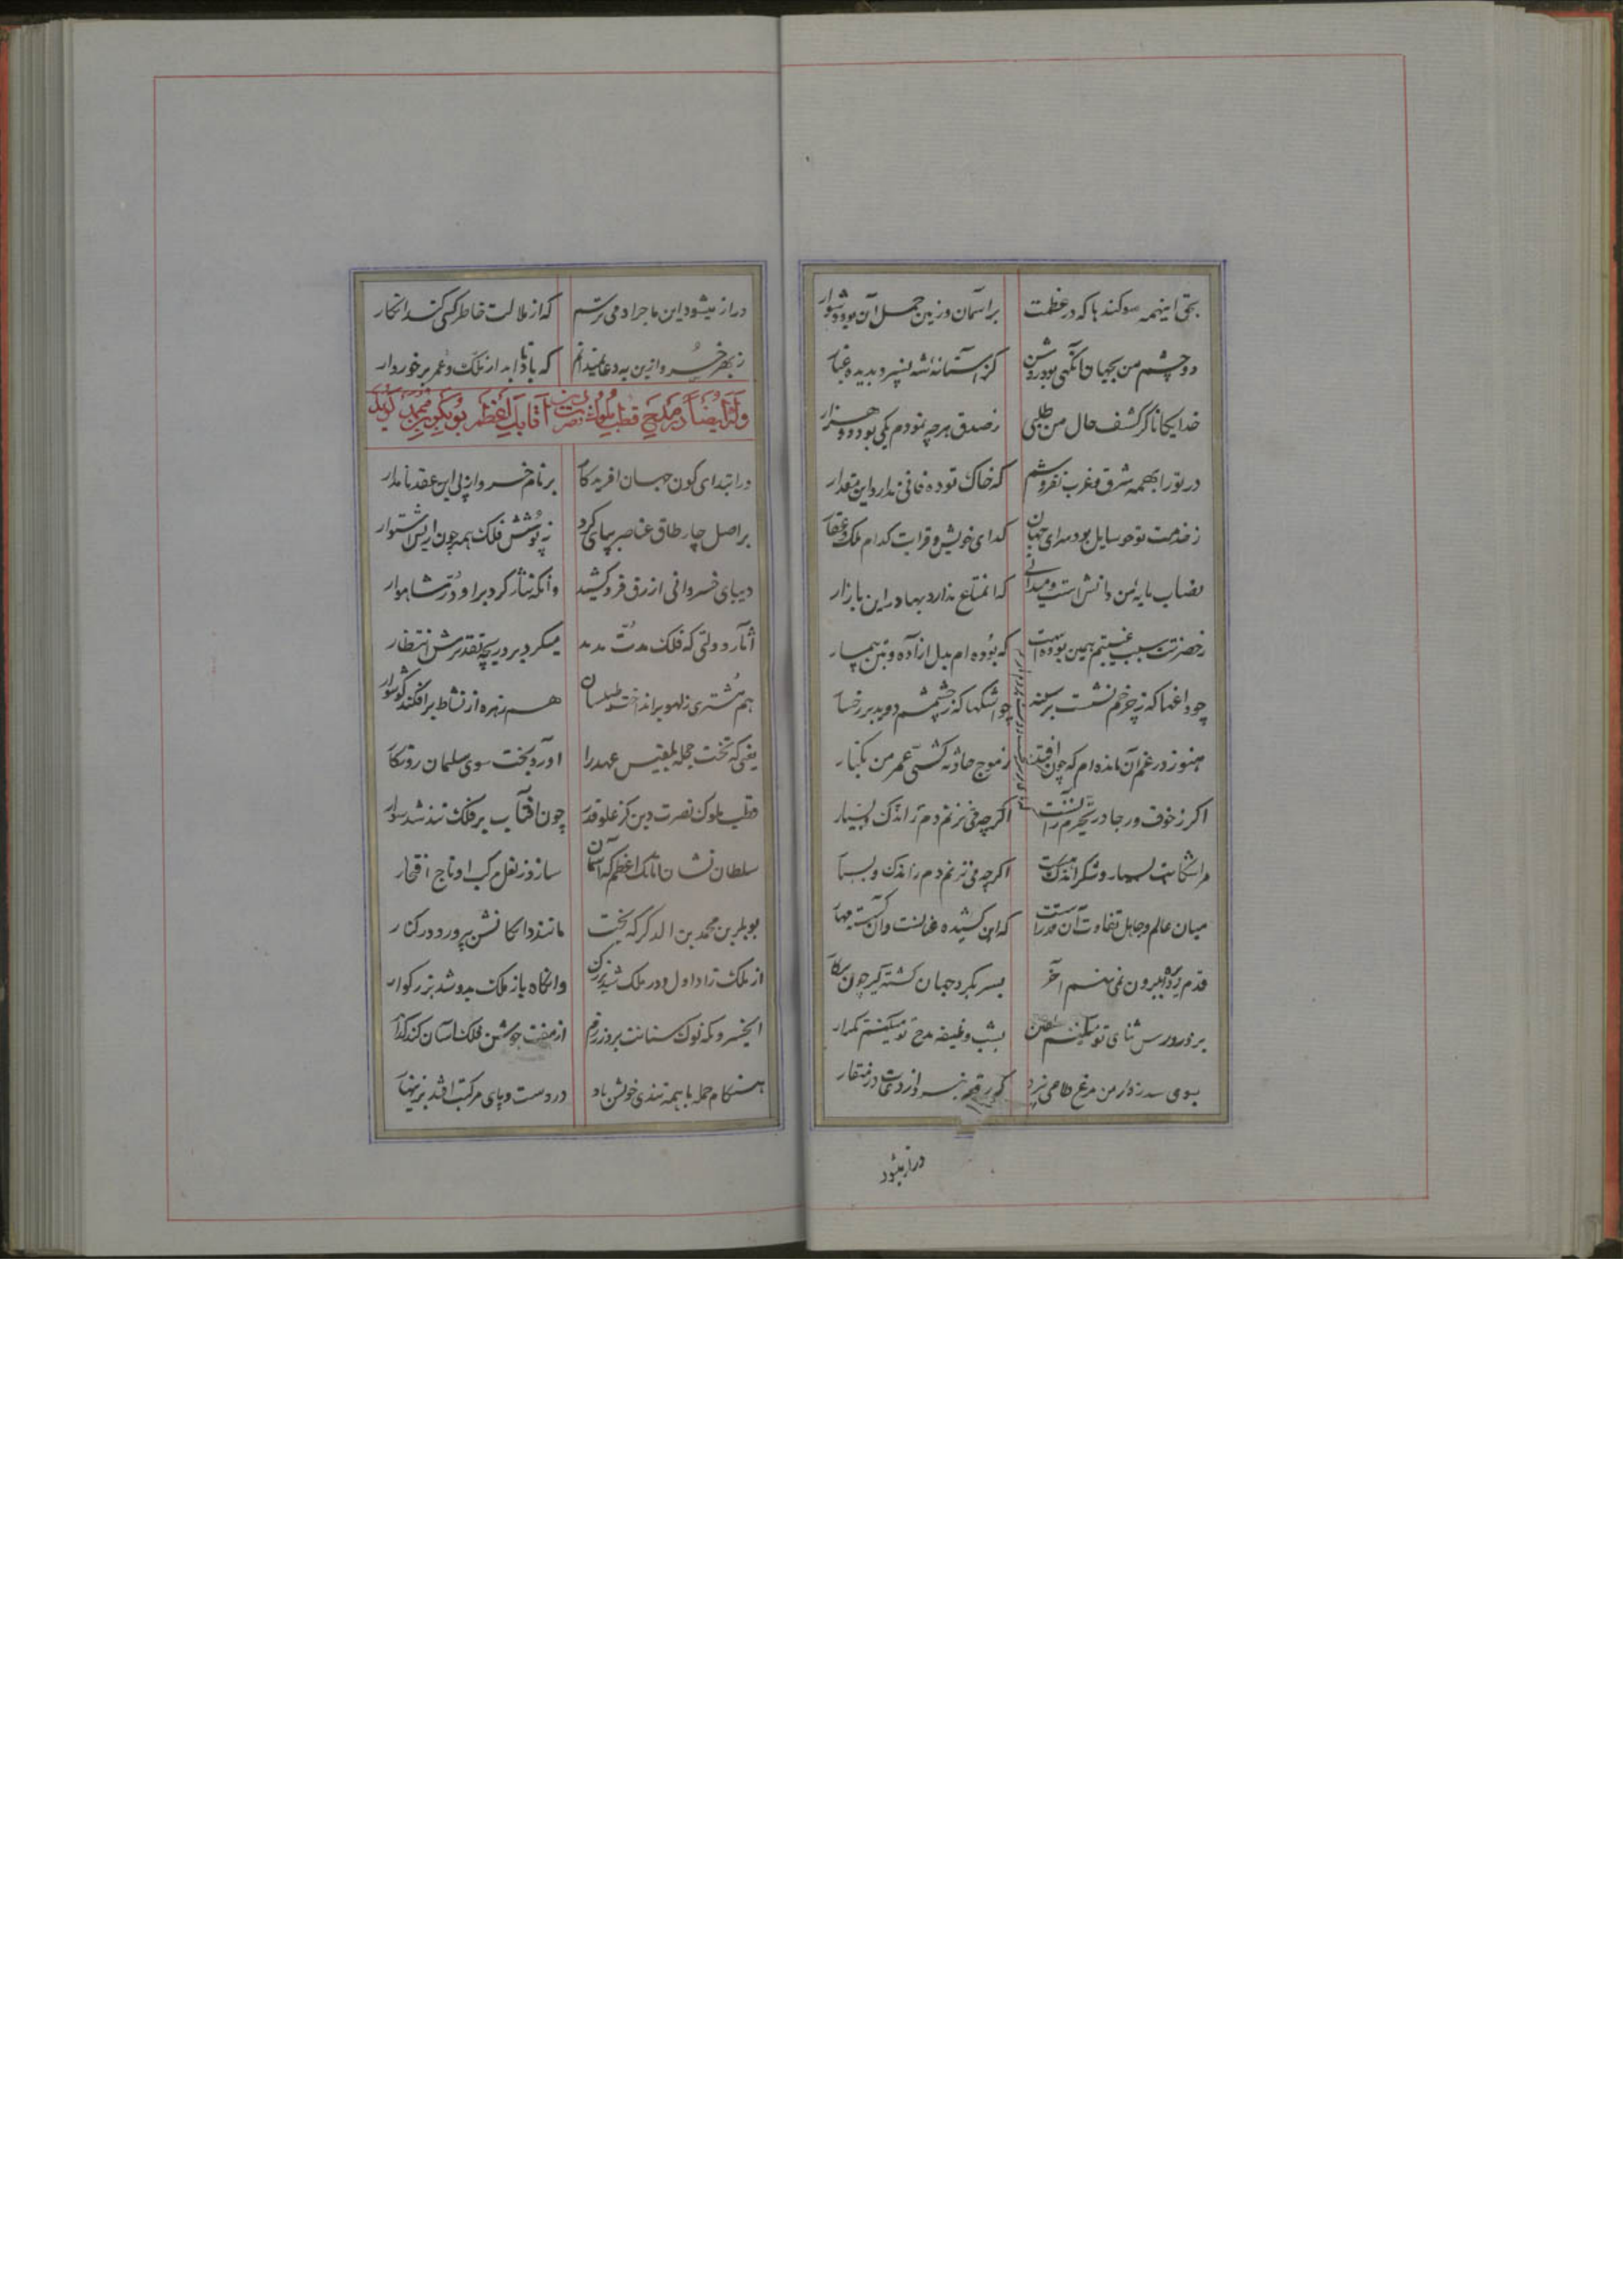 بحق اینهمه سوکند ها که در عظمت بر آسمان و زمین حمل آن بود دشوار
دو چشم من بجهان آنکهی بود روشن کز آستانه شه بسپرد بدیده غبار
خدایکانا کر کشف حال من طلبی ز صدق هر چه نمودم یکی بود ز هزار
در تو را بهمه شرق و غرب نفروشم که خاک توده فانی ندارد این مقدار
ز خدمت تو چو سایل بود سرای جهان کدای خویش و قرابت کدام ملک و عقار
نصاب مایه من دانش است و میدانی که این متاع ندارد بها در این بازار
ز حضرت سبب غیبتم همین بوده است که بوده ام بدل ازاده و بتن بیمار
چو داغها که ز چرخم نشست بر سینه چو اشکها که ز چشمم دوید بر رخسار
هنوز در غم آن مانده ام که چون افتد ز موج حادثه کشتی عمر من بکنار
اکر ز خوف و رجا در تحیرم زآنست اکر چه می نزنم دم ز اندک و بسیار
مرا شکایت بسیار و شکر اندک نیست اکر چه می نزنم دم ز اندک و بسیار
میان عالم و جاهل تفاوت آن قدر است که این کشیده عنانست و آن کسسته مهار
قدم ز دایره بیرون نمی نهم آخر بسر بکرد جهان کشته کیر چون پرکار
بروز درس ثنای تو میکنم تلقین بشب وظیفه مدح تو میکنم تکرار
بوی سدره ز وکر من مرغ طاعتی نپرد که رقعه نبرد از دعات در منقار
دراز میشود
دراز میشود این ماجرا و می ترسم که از ملالت خاطر کسی کند انکار
ز بهر خسرو ازین به دعا نمیدانم که باد تا ابد از ملک و عمر برخوردار
وله ایضا در مدح قطب ملوک نصرت الدین اتابک اعظم بوبکر بن محمد کوید
در ابتدای کون جهان افریدکار بر نام خسروان پی این عقد نامدار
بر اصل چار طاق عناصر بپای کرد نه پوشش فلک همه چون رایش استوار
دیبای خسروانی ازرق فرو کشید وانکه نثار کرد بر او در شاهوار
آثار دولتی که فلک مدت مدید میکرد بر دریچه تقدیرش انتظار
هم مشتری ز لهو برانداخت طیلسان هم زهره از نشاط برافکند کوشوار
یعنی که تخت حجله بلقیس عهد را آورد بخت سوی سلیمان روزکار
قطب ملوک نصرت دین کز علو قدر چون افتاب بر فلک تند شد سوار
سلطان نشان اتابک اعظم که آسمان سازد ز نعل مرکب او تاج افتخار
بوبکر بن محمد بن الدکز که بخت مانند دایکانش بپرورد در کنار
از ملک زاد اول و در ملک شد بزرک وانکاه باز ملک بدو شد بزرکوار
ای خسروی که نوک سنانت بروز رزم از هفت جوشن فلک آسان کند کذار
هنکام حمله با همه تندی خویش باد در دست و پای مرکبت افتد بزینهار